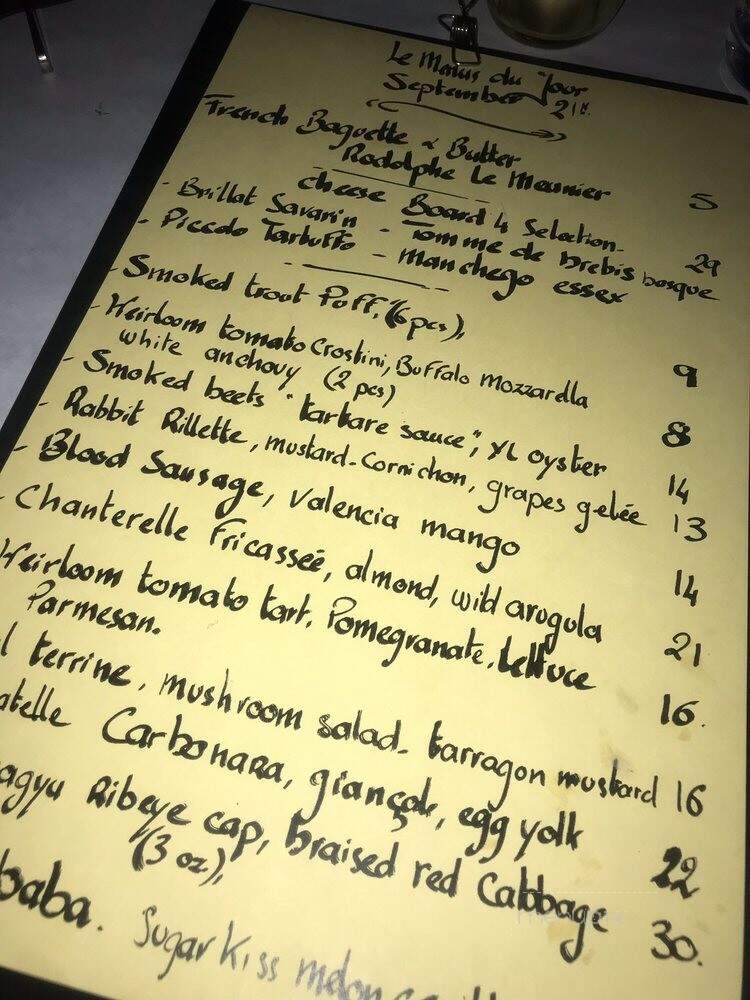 Le Menus du Jour
September 21st.
French Baguette & Butter
Rodolphe Le Meunier 5
cheese Board 4 Selection 29
- Brillat Savarin - Tomme de brebis basque
- Piccolo Tarbuffo - manchego essex
- Smoked trout Puff, (6 pcs), 9
- Heirloom tomato Crostini, Buffalo mozzardla
white anchovy (2 pcs) 8
- Smoked beets "tartare sauce", XL oyster 14
- Rabbit Rillette, mustard-Cornichon, grapes gelée 13
- Blood Sausage, Valencia mango 14
- Chanterelle Fricassée, almond, wild arugula 21
Heirloom tomato tart, Pomegranate, Lettuce
Parmesan. 16.
terrine, mushroom salad, tarragon mustard 16
atelle Carbonara, egg yolk 22
agyu Ribeye cap, braised red Cabbage
(3 oz), 30.
baba. Sugar kiss melon